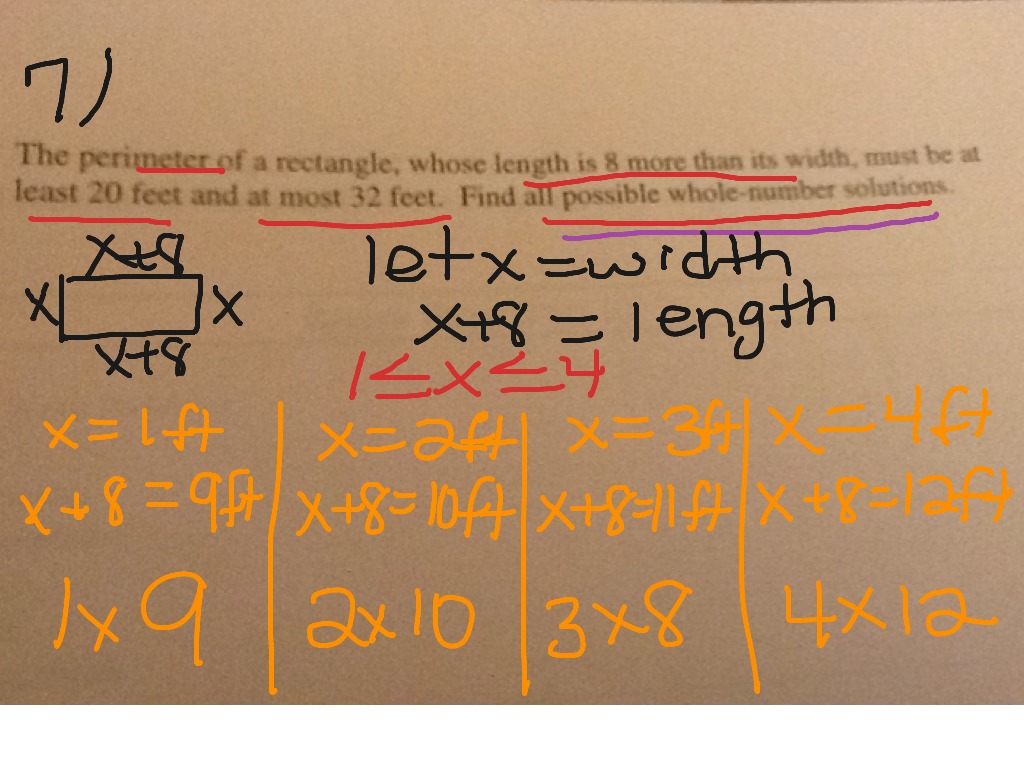 7)
The perimeter of a rectangle, whose length is 8 more than its width, must be at
least 20 feet and at most 32 feet. Find all possible whole-number solutions.
x+8
x x
x+8
let x = width
x+8 = length
1 ≤ x ≤ 4
x = 1ft x = 2ft x = 3ft x = 4ft
x + 8 = 9ft x+8=10ft x+8=11ft x+8=12ft
1x9 2x10 3x8 4x12